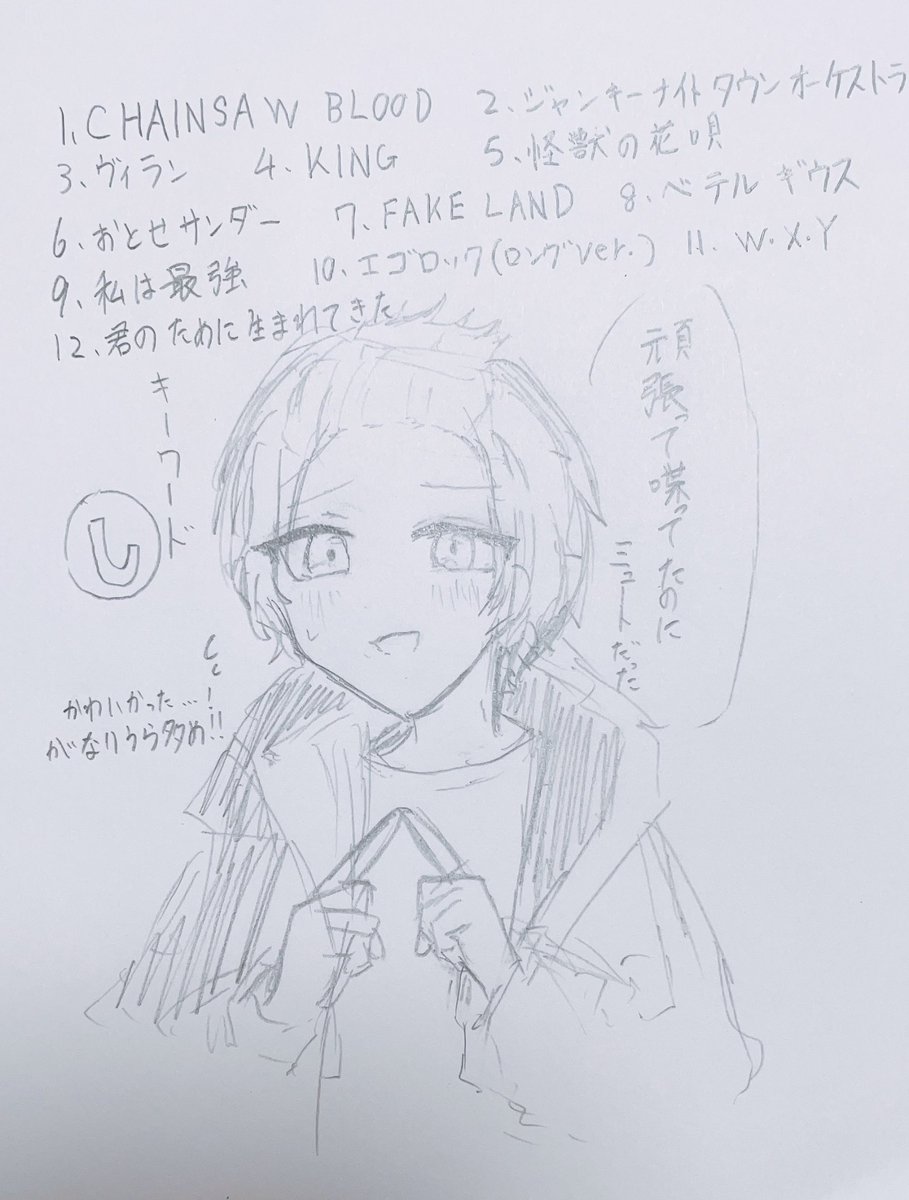 1.CHAINSAW BLOOD 2.ジャンキーナイトタウンオーケストラ
3.ヴィラン 4.KING 5.怪獣の花唄
6.おとせサンダー 7.FAKE LAND 8.ベテルギウス
9.私は最強 10.エゴロック(ロングver.) 11.W.X.Y
12.君のために生まれてきた
キーワード
し
頑張って喋ってたのに
ミュートだった
かわいかった…!
がなりうら多め!!